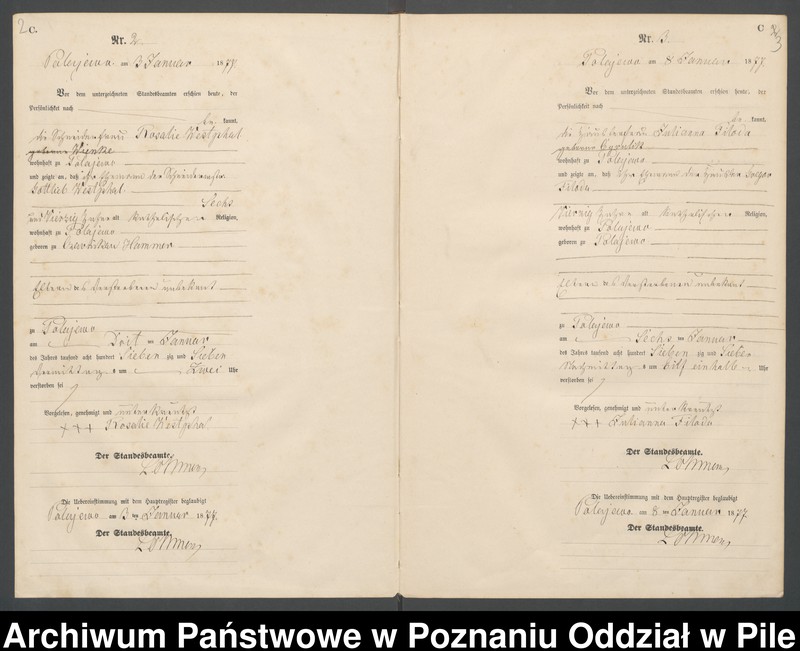 2 C.
Nr. 2
Polajewo am 3 Januar 1877.
Vor dem unterzeichneten Standesbeamten erschien heute, der
Persönlichkeit nach
be kannt,
die Schneiderfrau Rosalie Westphal
geborne Wienke
wohnhaft zu Polajewo
und zeigte an, daß ihr Ehemann der Schneider
Gottlieb Westphal
Sechs
und Vierzig Jahre alt Katholischer Religion,
wohnhaft zu Polajewo
geboren zu Hammer
Eltern des Verstorbenen unbekant
zu Polajewo
am Drit ten Januar
des Jahres tausend acht hundert Sieben zig und Sieben
Vormittag s um Zwei Uhr
verstorben sei
Vorgelesen, genehmigt und unterkreuzt
+++ Rosalie Westphal
Der Standesbeamte.
Die Uebereinstimmung mit dem Hauptregister beglaubigt
Polajewo am 3 ten Januar 1877.
Der Standesbeamte.
C
3
Nr. 3
Polajewo am 8 Januar 1877.
Vor dem unterzeichneten Standesbeamten erschien heute, der
Persönlichkeit nach
be kannt,
die Julianna Piloda
geborne
wohnhaft zu Polajewo
und zeigte an, daß Ihr Ehemann der Häusler
Piloda
Vierzig Jahre alt Katholischer Religion,
wohnhaft zu Polajewo
geboren zu Polajewo
Eltern des Verstorbenen unbekant
zu Polajewo
am Sechs ten Januar
des Jahres tausend acht hundert Sieben zig und Sieben
Nachmittag s um Elf einhalb Uhr
verstorben sei
Vorgelesen, genehmigt und unterkreuzt
+++ Julianna Piloda
Der Standesbeamte.
Die Uebereinstimmung mit dem Hauptregister beglaubigt
Polajewo am 8 ten Januar 1877.
Der Standesbeamte.
Archiwum Państwowe w Poznaniu Oddział w Pile